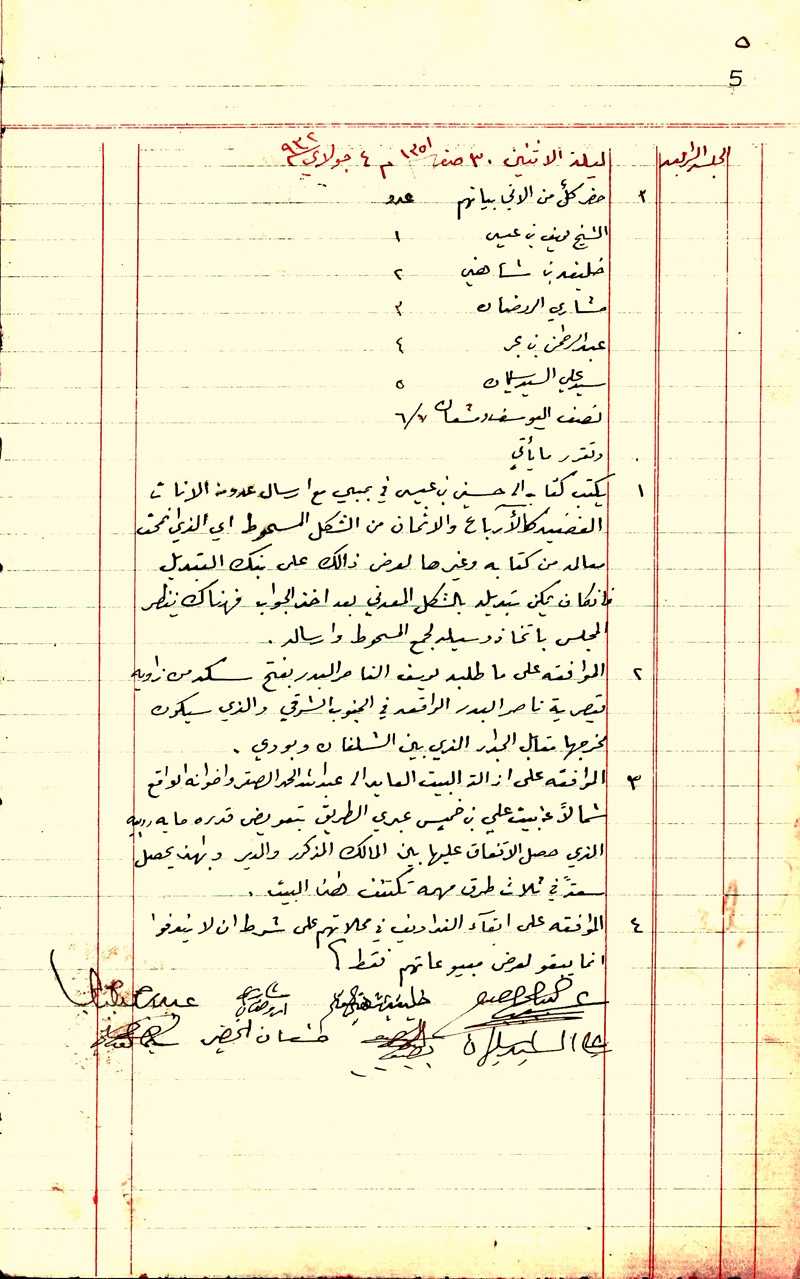 ٥
5
الجلسة الرابعة ليلة الاثنين ٣٠ صفر ١٣٥١ م ٤ جولاي ٩٣٢
٢ حضر كلٌ من الآتي بيانهم عدد
الشيخ يوسف بن عيسى ١
خليفه بن شاهين ٢
مشاري الروضان ٣
عبدالرحمن بن بحر ٤
سيد علي السيد سليمان ٥
نصف اليوسف ومشعان ٦/٧
وتقرر ما يأتي
١ يكتب كتاب الى حسين بن عيسى في بمبي مع ارسال عدد من الانات
الفضيه كالأرباع والاثمان من الشكل الممسوط اي الذي انمحت
معالمه من كتابه وغيرها لعرض ذالك على بنك التبديل
فانكان يمكن تبديله بالشكل المعدني بعد اخذ الجواب فهناك ينظر
المجلس باتخاذ وسيله لجمع الممسوط وارساله .
٢ الموافقه على ما طلبه يوسف الناصر البدر بفتح سكه من زاويه
قيصرية ناصر البدر الواقعه في الجنوب الشرقي والذي سيكون
مخرجها مقابل الجدار الذي بين الشلفان وبودي .
٣ الموافقه على ازالة البيت العايد الى عبدالله الحمد الصقر واخوانه الواقع
شمالاً عن بيت علي بن خميس عبري الطريق بتعويض قدره مايه روبيه
الذي حصل الاتفاق عليها بين المالك المذكور والمدير وبهذا يحصل
سعةً في ثلاث طرق مهمه تكتنف هذا البيت .
٤ الموافقه على ابقآء الفداويه في محلاتهم على شرط ان لا
انما يبقو لعرض مبيوعاتهم فقط
خليفه بن شاهين مشاري الروضان
علي السيد سليمان مشعان الخضير